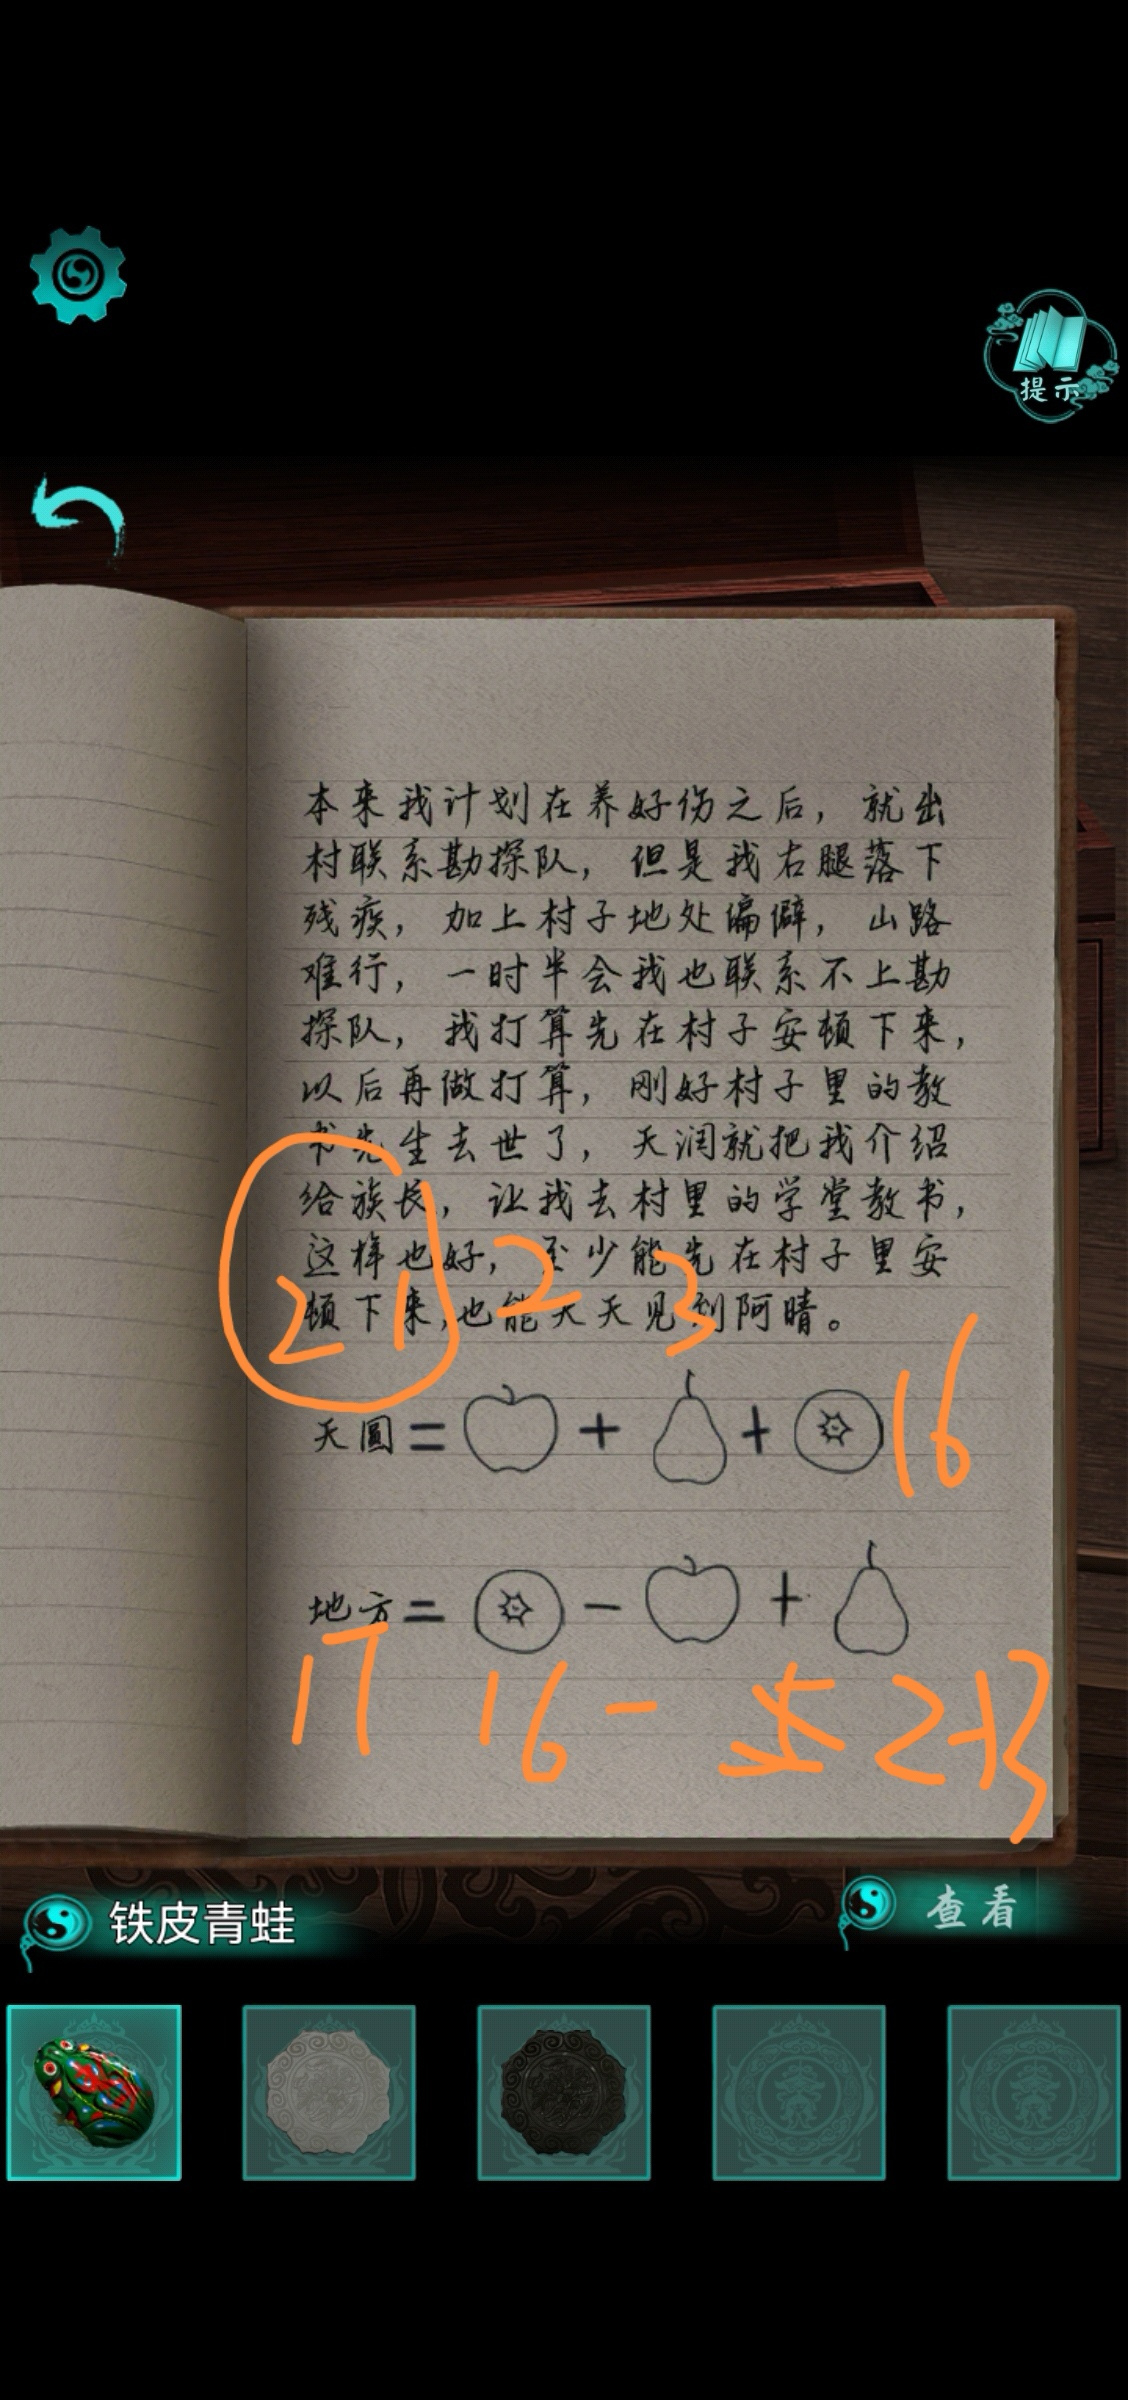 提示
本来我计划在养好伤之后，就出
村联系勘探队，但是我右腿落下
残疾，加上村子地处偏僻，山路
难行，一时半会我也联系不上勘
探队，我打算先在村子安顿下来，
以后再做打算，刚好村子里的教
书先生去世了，天润就把我介绍
给族长，让我去村里的学堂教书，
这样也好，至少能先在村子里安
顿下来，也能天天见到阿晴。
21 2 3
天圆= + + 16
地方= - +
17 16- 2+3
铁皮青蛙
查看